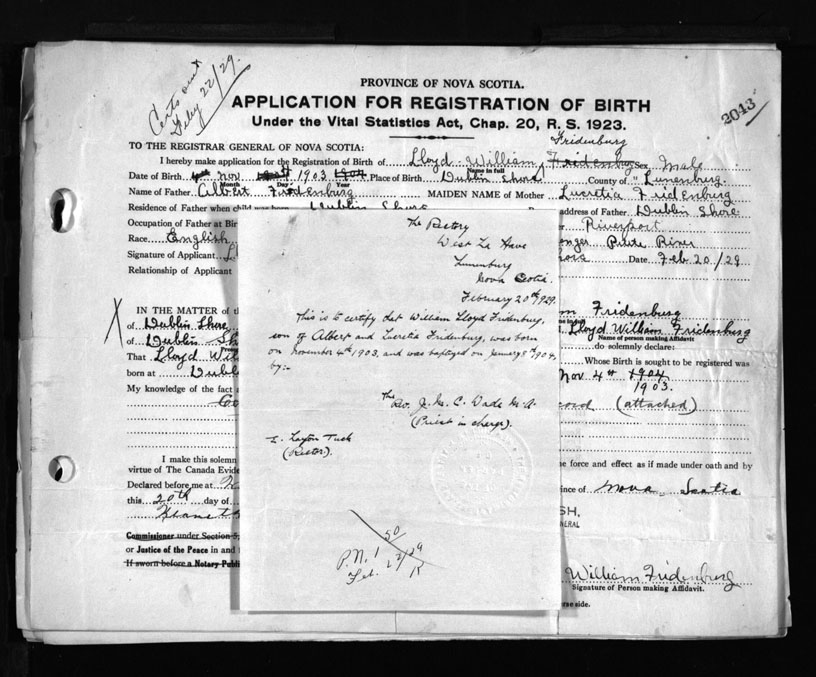 Certs out
Feby 22/29.
2043
PROVINCE OF NOVA SCOTIA.
APPLICATION FOR REGISTRATION OF BIRTH
Under the Vital Statistics Act, Chap. 20, R. S. 1923.
TO THE REGISTRAR GENERAL OF NOVA SCOTIA:
Fridenburg
I hereby make application for the Registration of Birth of Lloyd William Fridenburg Sex Male
Name in full
Date of Birth Nov 1903 1904 Place of Birth Dublin Shore County of Lunenburg
Month Day Year
Name of Father Albert Fridenburg MAIDEN NAME of Mother Lucretia Fridenburg
Residence of Father when child was born Dublin Shore address of Father Dublin Shore
Occupation of Father at Bir Riverport
Race English Petite River
Signature of Applicant Date Feb 20/29
Relationship of Applicant
IN THE MATTER of th m Fridenburg
of Dublin Shore Lloyd William Fridenburg
Name of person making Affidavit
of Dublin Sh do solemnly declare:
That Lloyd Wil Whose Birth is sought to be registered was
born at Dubl Nov 4th 1904
1903.
My knowledge of the fact a cord (attached)
I make this solemn e force and effect as if made under oath and by
virtue of The Canada Evide
Declared before me at nce of Nova Scotia
this 20th day of
SH,
GENERAL
Commissioner under Section 5,
or Justice of the Peace in and f
If sworn before a Notary Publi
William Fridenburg
Signature of Person making Affidavit.
rse side.
The Rectory
West La Have
Lunenburg
Nova Scotia.
February 20th, 1929.
This is to certify that William Lloyd Fridenburg,
son of Albert and Lucretia Fridenburg, was born
on November 4th 1903, and was baptized on January 8th 1904,
by:-
The Rev. J. G. C. Wade M.A.
(Priest in charge).
E. Layton Tuck
(Rector).
50
P.N. 1
Feb. 22/29